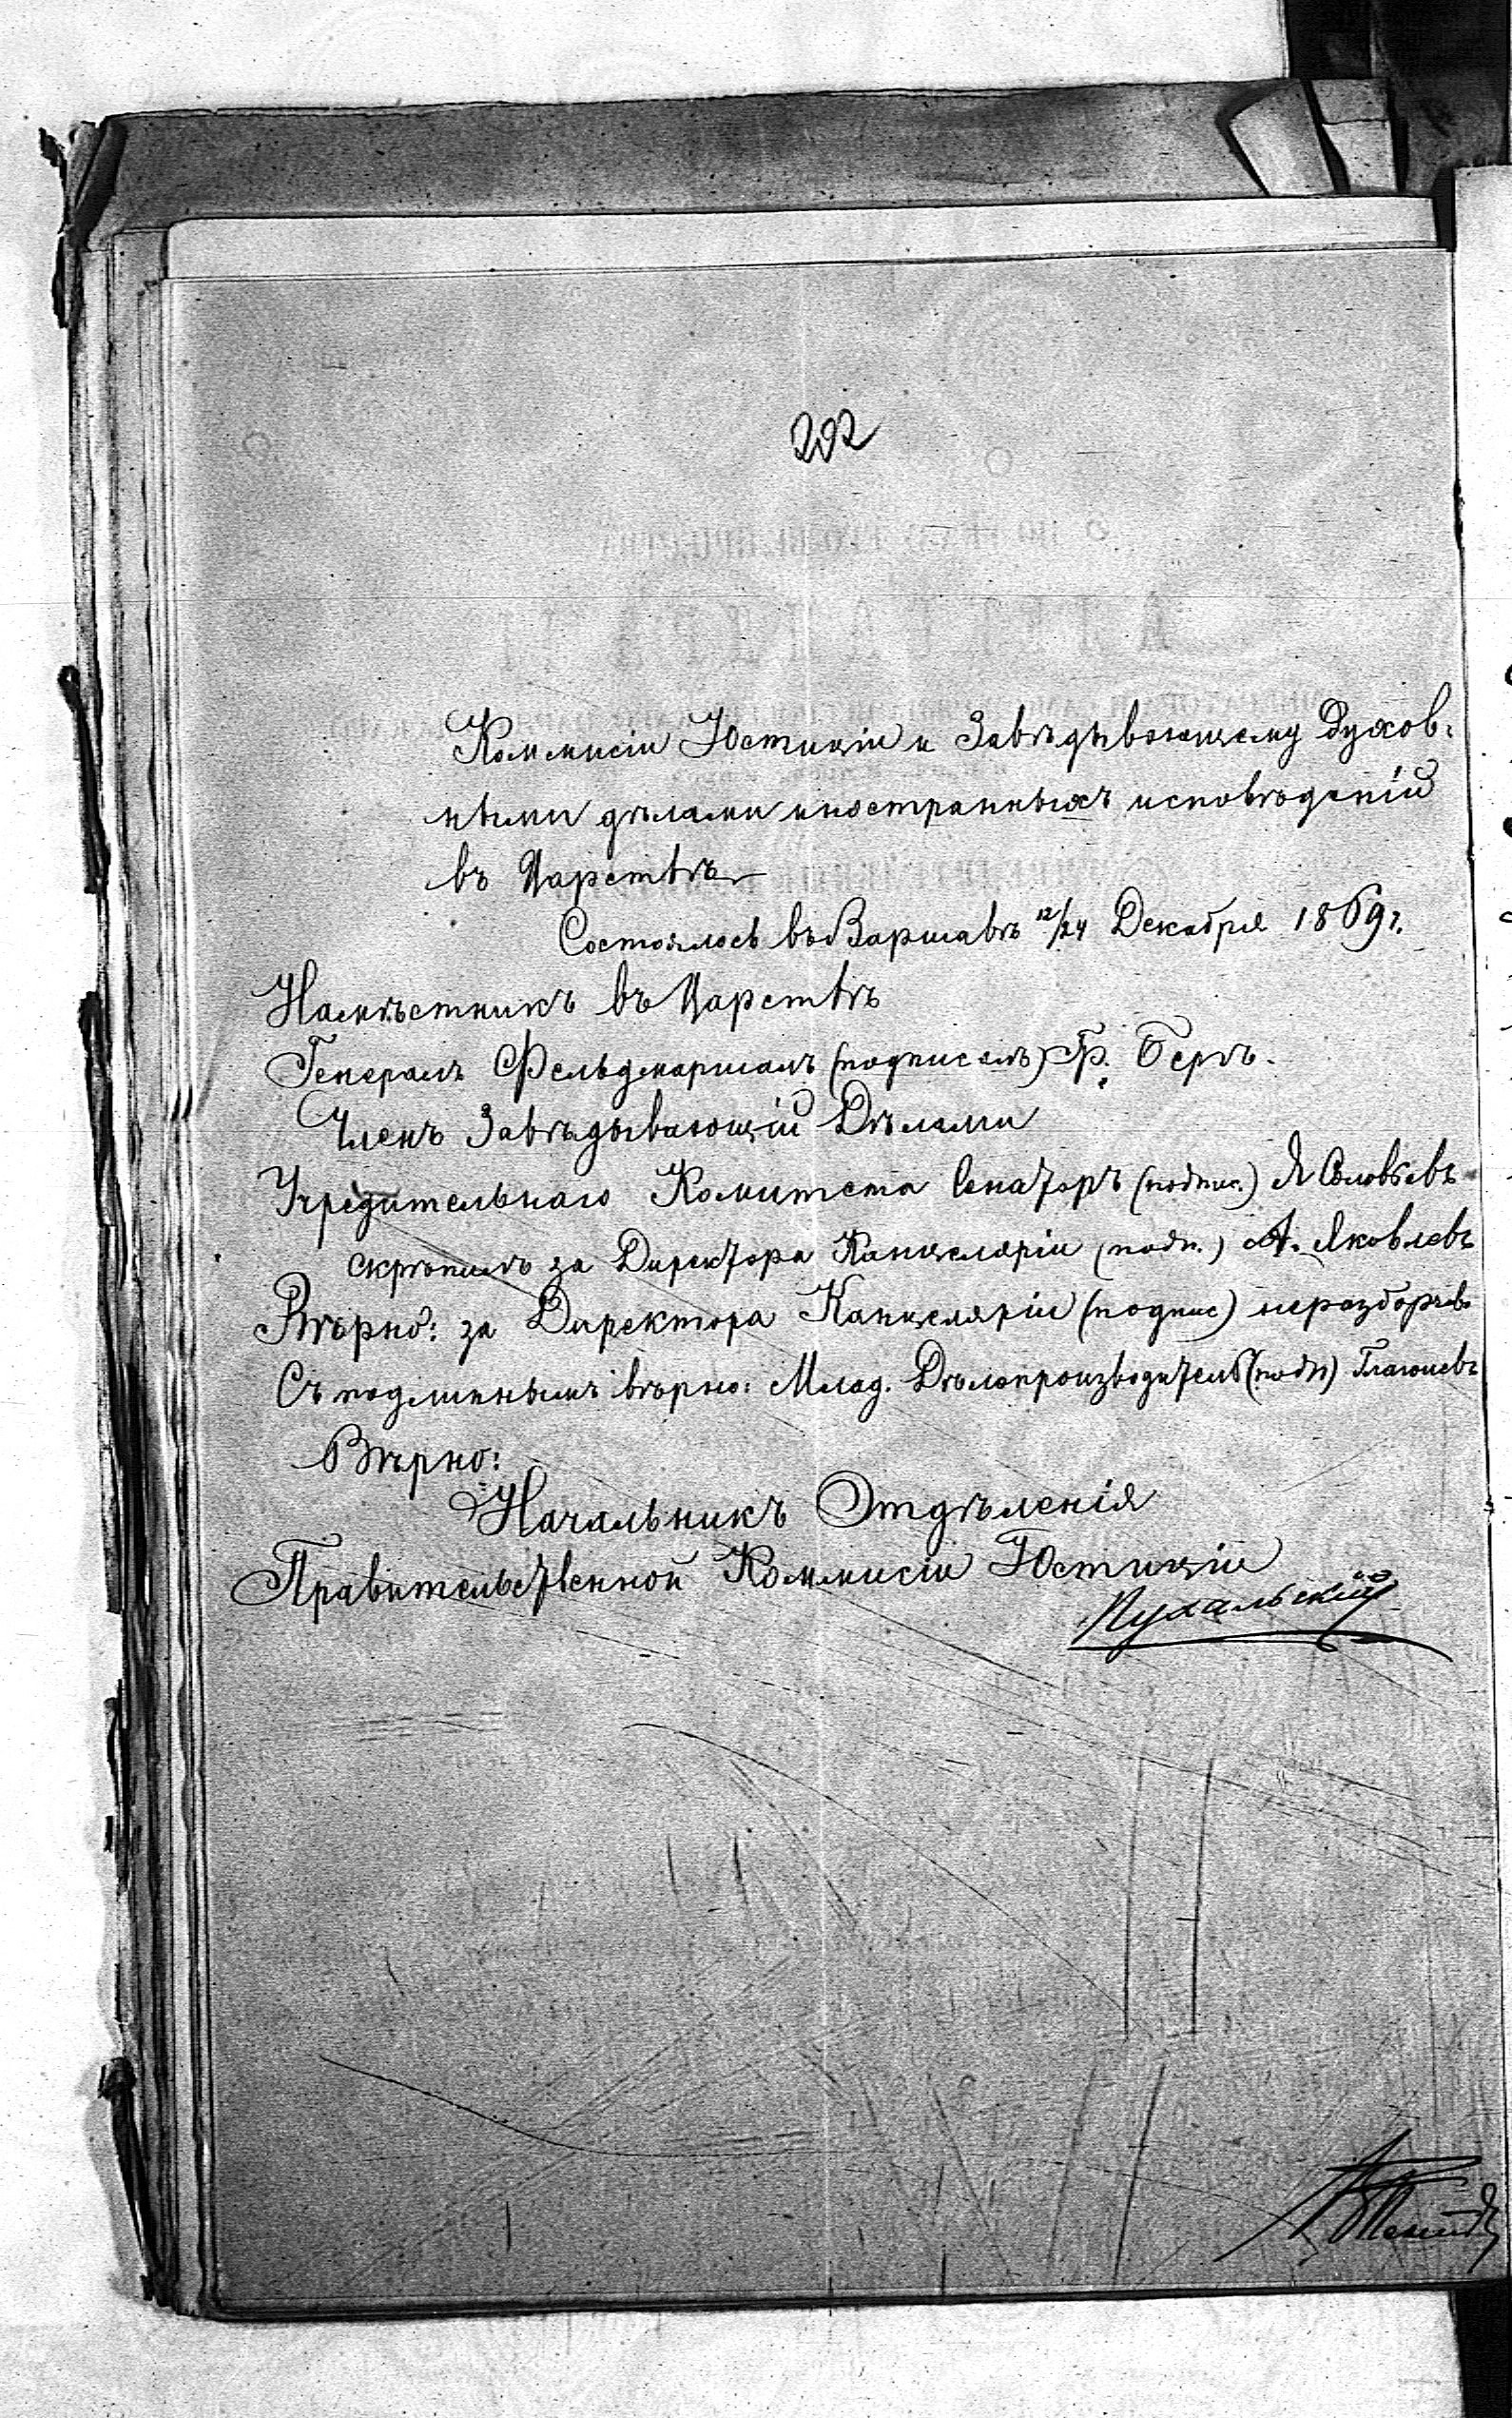 202
Коммисіи Юстиціи и Завѣдывающему Духов-
ными дѣлами иностранныхъ исповѣданій
въ Царствѣ
Состоялось въ Варшавѣ 12/24 Декабря 1869 г.
Намѣстникъ въ Царствѣ
Генералъ Фельдмаршалъ (подписалъ) Гр. Бергъ.
Членъ Завѣдывающій Дѣлами
Учредительнаго Комитета Сенаторъ (подпис.) Я Соловьевъ
скрѣпилъ за Директора Канцеляріи (подп.) А. Яковлевъ
Вѣрно: за Директора Канцеляріи (подпис) неразборчиво
Съ подлиннымъ вѣрно: Млад. Дѣлопроизводитель (подп)
Вѣрно:
Начальникъ Отдѣленія
Правительственной Коммисіи Юстиціи
Пухальскій